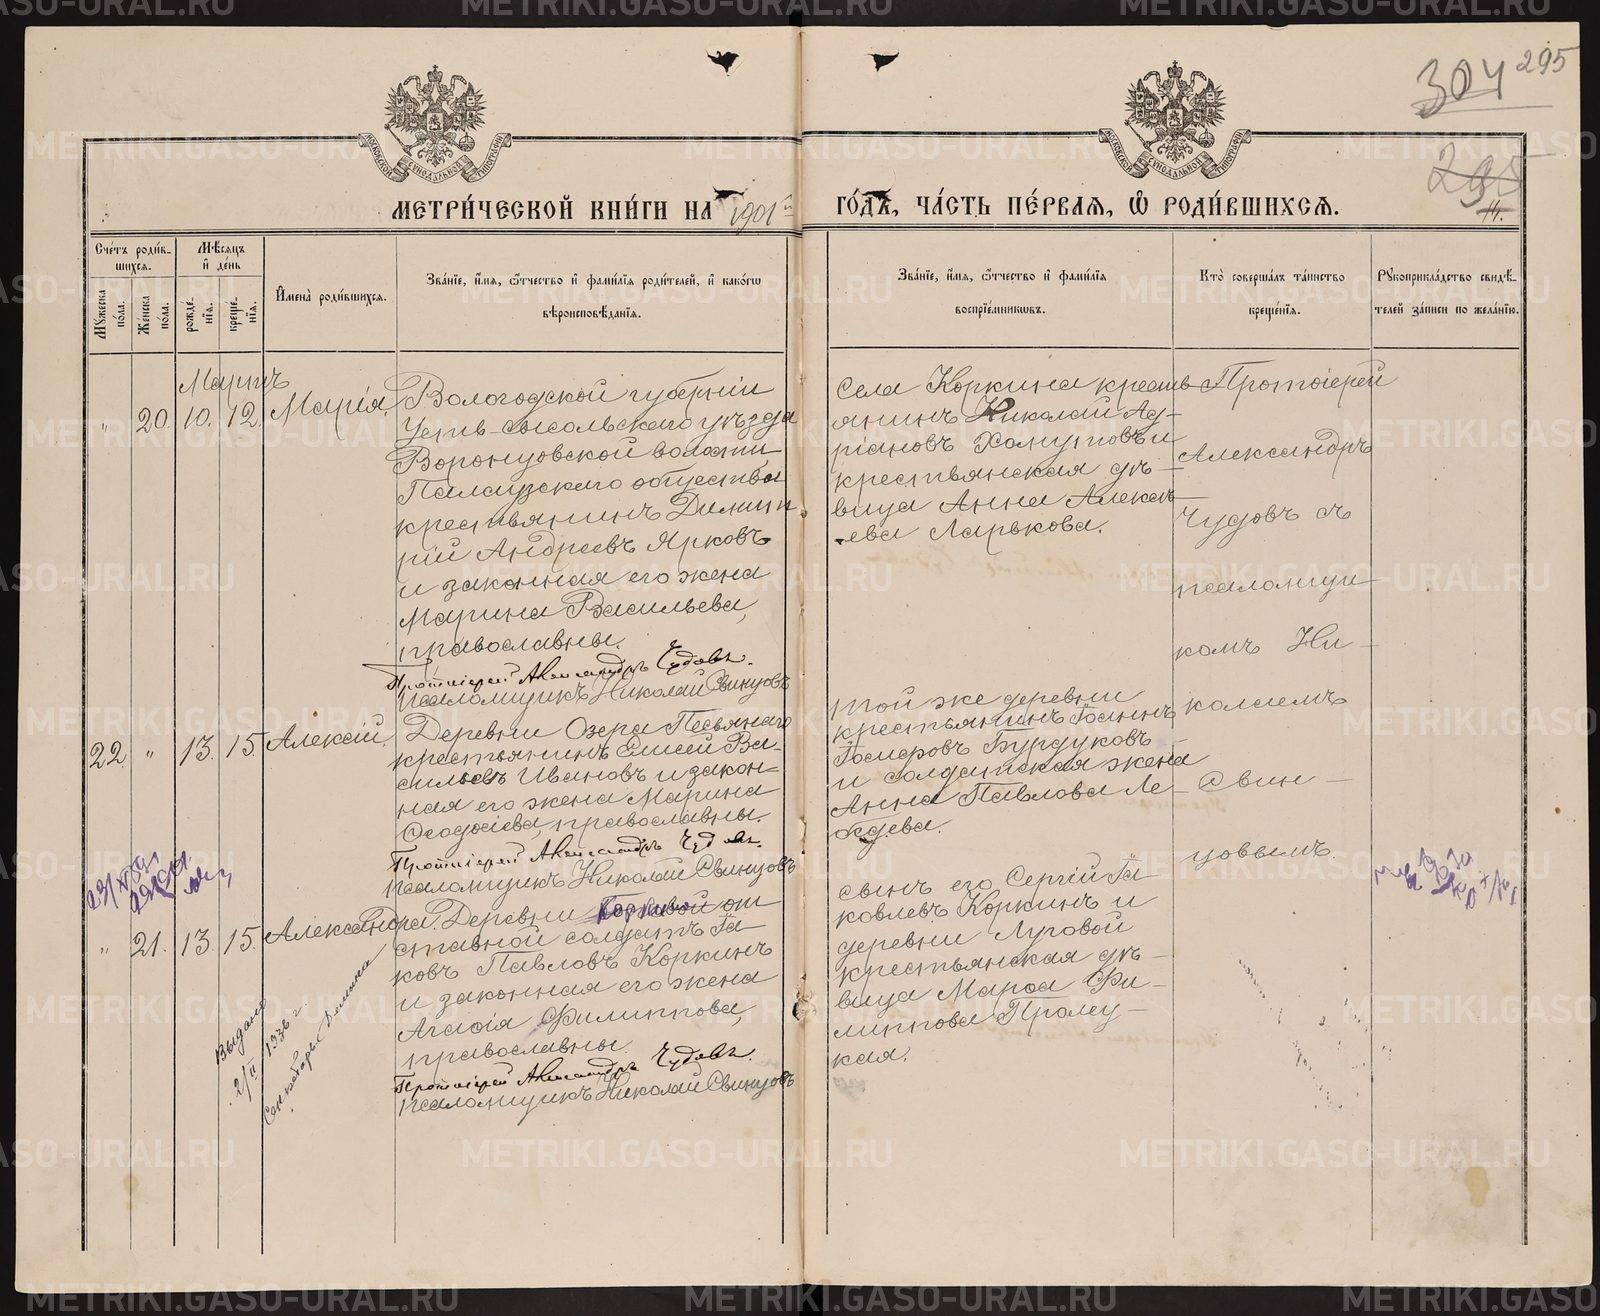 304 295
295
14.
МОСКОВСКОЙ СѴНОДАЛЬНОЙ ТИПОГРАФІИ
МОСКОВСКОЙ СѴНОДАЛЬНОЙ ТИПОГРАФІИ
МЕТРИ́ЧЕСКОЙ КНИ́ГИ НА 1901й ГО́ДЪ, ЧА́СТЬ ПЕ́РВАЯ, Ѽ РОДИ́ВШИХСЯ.
Сче́тъ роди́в-
шихся.
Му́жеска по́ла.
Же́нска по́ла.
Мѣ́сяцъ
и́ де́нь
рожде́нія.
креще́нія.
И҆мена̀ роди́вшихся.
Зва́нїе, и҆́мя, ѻ҆́тчество и҆ фами́лїя роди́телей, и҆ како́гѡ
вѣроисповѣ́данїя.
Зва́нїе, и҆́мя, ѻ҆́тчество и҆ фами́лїя
воспрїе́мникѡвъ.
Кто̀ соверша́лъ та́инство
креще́нїя.
Рꙋкоприкла́дство свидѣ́-
телей за́писи по жела́нїю.
Мартъ
" 20. 10. 12. Марія.
Вологодской губерніи
Усть-сысольскаго уѣзда
Воронцовской волости
Палаузскаго общества
крестьянинъ Димит
рій Андреевъ Ярковъ
и законная его жена
Марина Васильева,
православны.
Протоіерей Александръ Чудовъ.
псаломщикъ Николай Свинцовъ
Села Коркина крестья
янинъ Николай Ад-
ріановъ Хомутовъ и
крестьянская дѣ-
вица Анна Алексѣ-
ева Ларькова.
Протоіерей
Александръ
Чудовъ съ
псаломщи
комъ Ни-
колаемъ
Свин-
цовымъ
22. " 13. 15. Алексій.
Деревни Озера Песьянаго
крестьянинъ Елисей Ва-
сильевъ Ивановъ и закон-
ная его жена Марина
Ѳеодосіева, православны.
Протоіерей Александръ Чудовъ.
псаломщикъ Николай Свинцовъ
той же деревни
крестьянинъ Іоаннъ
Іосифовъ Бурдуковъ
и солдатская жена
Анна Павлова Ле-
бедева.
" 21. 13. 15. Александра.
Деревни Коркиной от
ставной солдатъ Іа-
ковъ Павловъ Коркинъ
и законная его жена
Агаѳія Филиппова,
православны.
Протоіерей Александръ Чудовъ.
псаломщикъ Николай Свинцовъ
сынъ его Сергій Іа-
ковлевъ Коркинъ и
деревни Луговой
крестьянская дѣ-
вица Марѳа Фи-
липпова Промеу-
кая.
Выдано
2/II 1936 г
METRIKI.GASO-URAL.RU